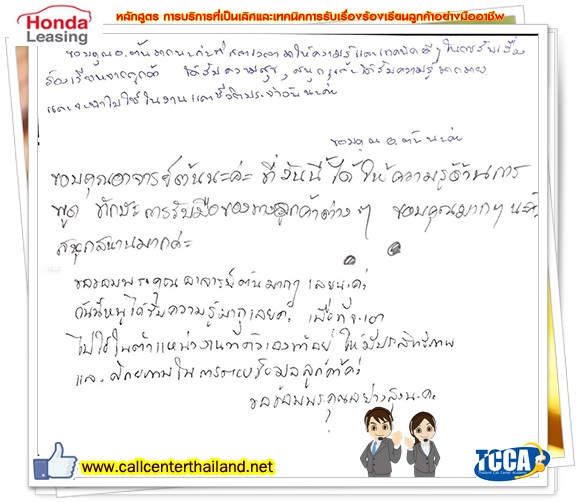 HONDA
Leasing
หลักสูตร การบริการที่เป็นเลิศและเทคนิคการรับเรื่องร้องเรียนลูกค้าอย่างมืออาชีพ
ขอบคุณอ.ต้นมากนะค่ะที่สละเวลามาให้ความรู้และเทคนิคดีๆ ในการรับเรื่อง
ร้องเรียนจากลูกค้า ได้รับความสุข, สนุก ได้รับความรู้มากมาย
และจะนำไปใช้ในงานและชีวิตประจำวันนะค่ะ
ขอบคุณ อ.ต้นนะค่ะ
ขอบคุณอาจารย์ต้นนะค่ะ ที่วันนี้ได้ให้ความรู้ด้านการ
พูด ทักษะการรับมือของทางลูกค้าต่าง ๆ ขอบคุณมากๆ นะค่ะ
สนุกสนานมากค่ะ
ขอขอบพระคุณอาจารย์ต้นมากๆ เลยนะค่ะ
วันนี้หนูได้รับความรู้มากเลยค่ะ เพื่อที่จะเอา
ไปใช้ในตำแหน่งงานที่ตัวเองทำอยู่ ให้มีประสิทธิภาพ
และศักยภาพในการดูแลลูกค้าค่ะ
ขอขอบพระคุณอย่างสูงนะคะ
www.callcenterthailand.net
TCCA
Thailand Call Center Academy